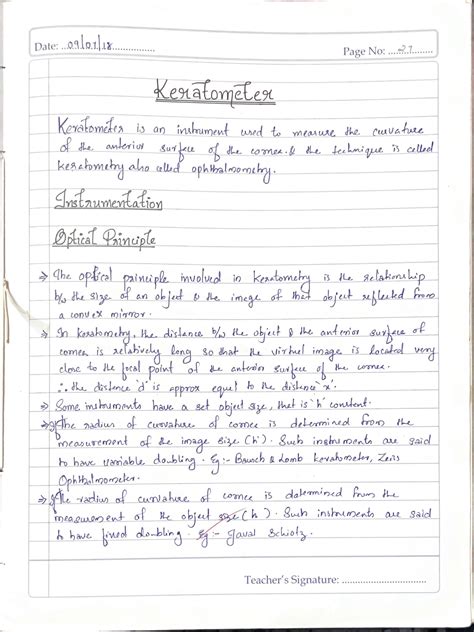 Date: ..09/01/18..............
Page No: ....27........
Keratometer
Keratometer is an instrument used to measure the curvature
of the anterior surface of the cornea & the technique is called
keratometry also called ophthalmometry.
Instrumentation
Optical Principle
⇒ The optical principle involved in keratometry is the relationship
b/w the size of an object & the image of that object reflected from
a convex mirror.
⇒ In keratometry, the distance b/w the object & the anterior surface of
cornea is relatively long so that the virtual image is located very
close to the focal point of the anterior surface of the cornea.
∴ the distance 'd' is approx equal to the distance 'x'.
⇒ Some instruments have a set object size, that is 'h' constant.
⇒ If the radius of curvature of cornea is determined from the
measurement of the image size (h'). Such instruments are said
to have variable doubling. Eg:- Bausch & Lomb keratometer, Zeiss
Ophthalmometer.
⇒ If the radius of curvature of cornea is determined from the
measurement of the object size (h). Such instruments are said
to have fixed doubling. Eg:- Javal Schiotz.
Teacher's Signature: ..............................